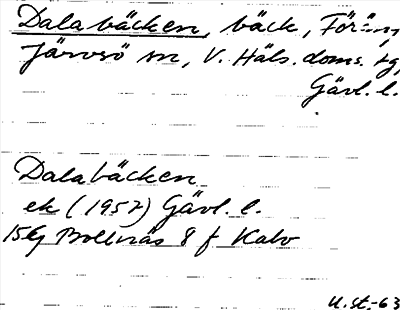 Dalabäcken, bäck, Förs
Järvsö sn, V. Häls. doms. tg,
Gävl. l.
Dalabäcken
ek (1957) Gävl. l.
15G Bollnäs 8 f Kalv
U.st.-63